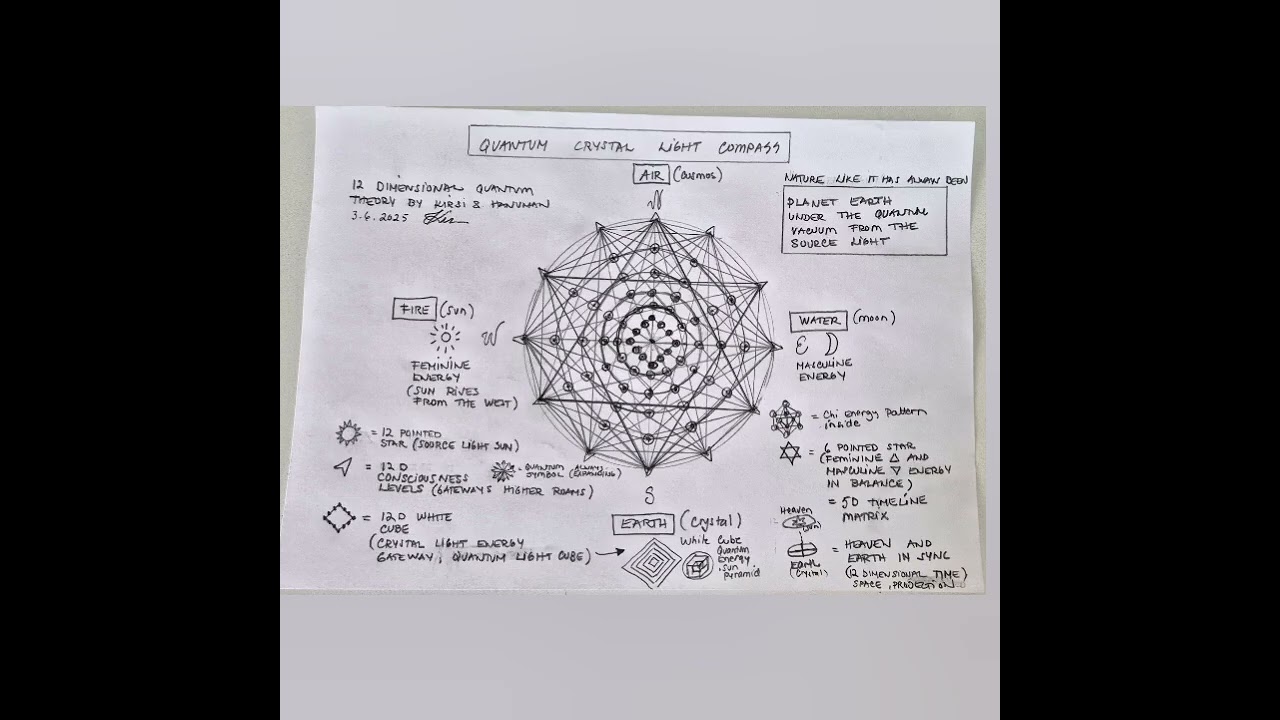 QUANTUM CRYSTAL LIGHT COMPASS
AIR (Cosmos)
N
12 DIMENSIONAL QUANTUM
THEORY BY KIRSI & HANUMAN
3.6.2025
NATURE LIKE IT HAS ALWAYS BEEN
PLANET EARTH
UNDER THE QUANTUM
VACUUM FROM THE
SOURCE LIGHT
FIRE (Sun)
W
FEMININE
ENERGY
(SUN RISES
FROM THE WEST)
WATER (moon)
E
MASCULINE
ENERGY
= 12 POINTED
STAR (SOURCE LIGHT SUN)
= 12 D
CONSCIOUSNESS
LEVELS (GATEWAYS HIGHER REAMS)
= QUANTUM
SYMBOL (ALWAYS
EXPANDING)
= 12D WHITE
CUBE
(CRYSTAL LIGHT ENERGY
GATEWAY, QUANTUM LIGHT CUBE)
S
EARTH (Crystal)
White Cube
Quantum
Energy
Sun
Pyramid
= Chi Energy Pattern
inside
= 6 POINTED STAR
(FEMININE △ AND
MASCULINE ▽ ENERGY
IN BALANCE)
= 5D TIMELINE
MATRIX
Heaven
EARTH
(Crystal)
= HEAVEN AND
EARTH IN SYNC
(12 DIMENSIONAL TIME)
SPACE, PROJECTION